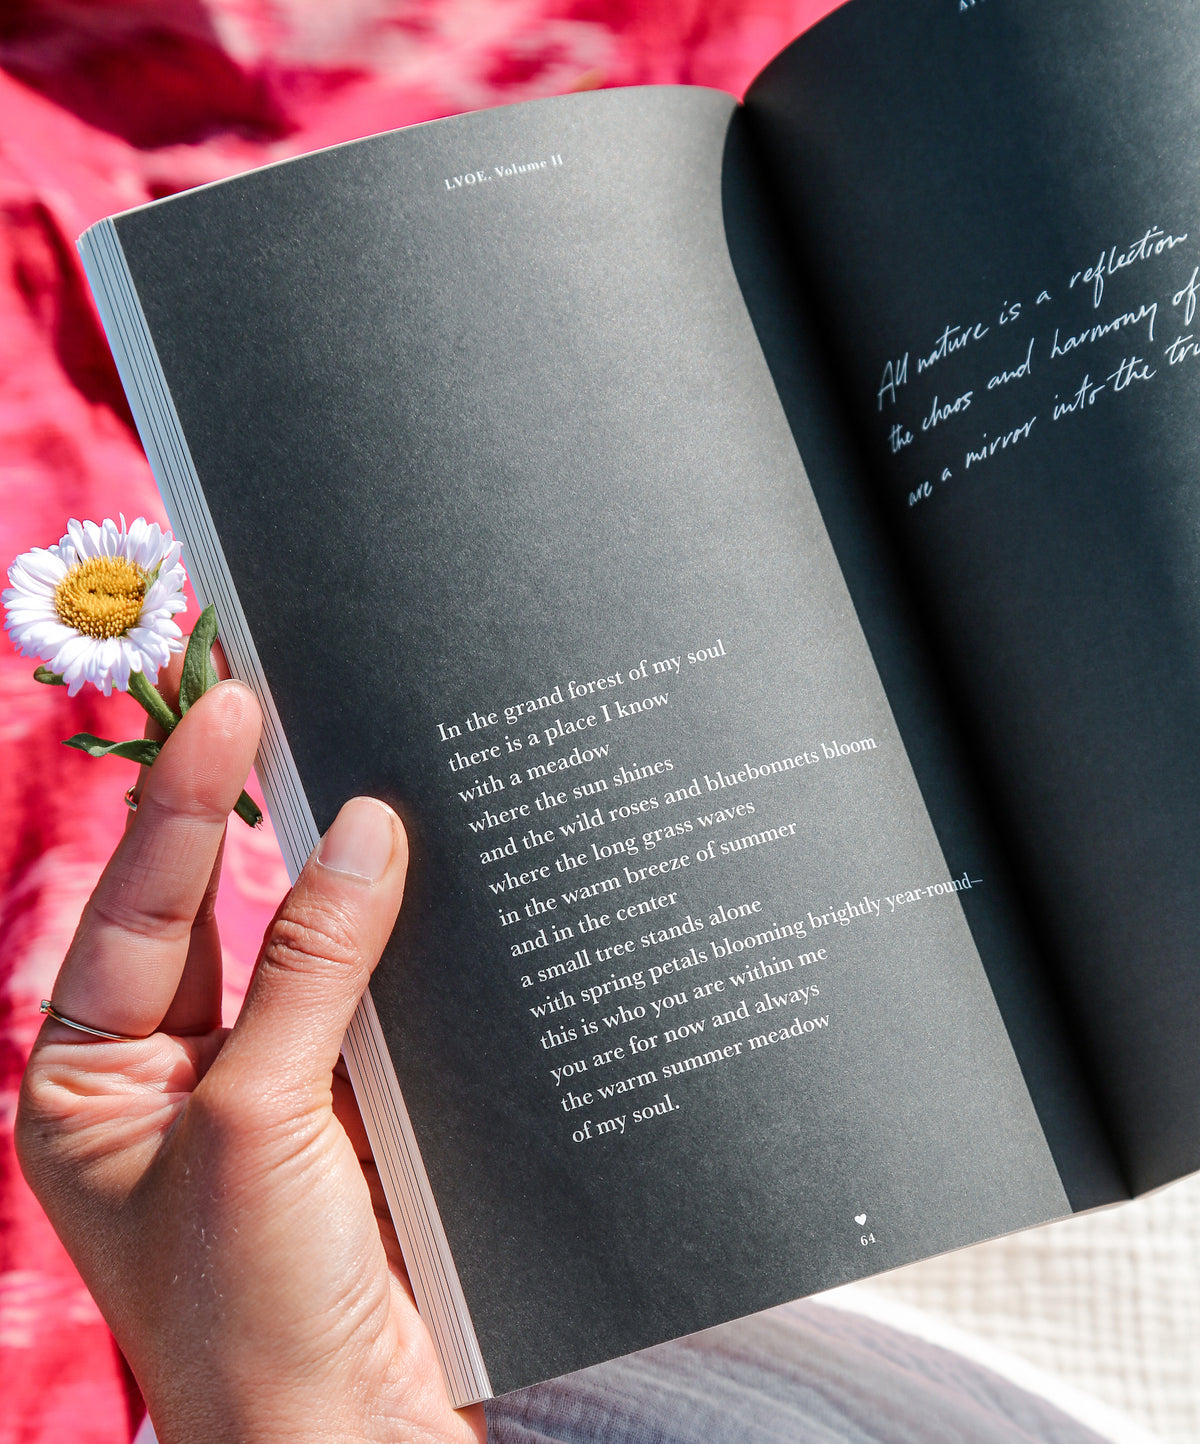 LVOE. Volume II
In the grand forest of my soul
there is a place I know
with a meadow
where the sun shines
and the wild roses and bluebonnets bloom
where the long grass waves
in the warm breeze of summer
and in the center
a small tree stands alone
with spring petals blooming brightly year-round—
this is who you are within me
you are for now and always
the warm summer meadow
of my soul.
64
All nature is a reflection
the chaos and harmony of
are a mirror into the